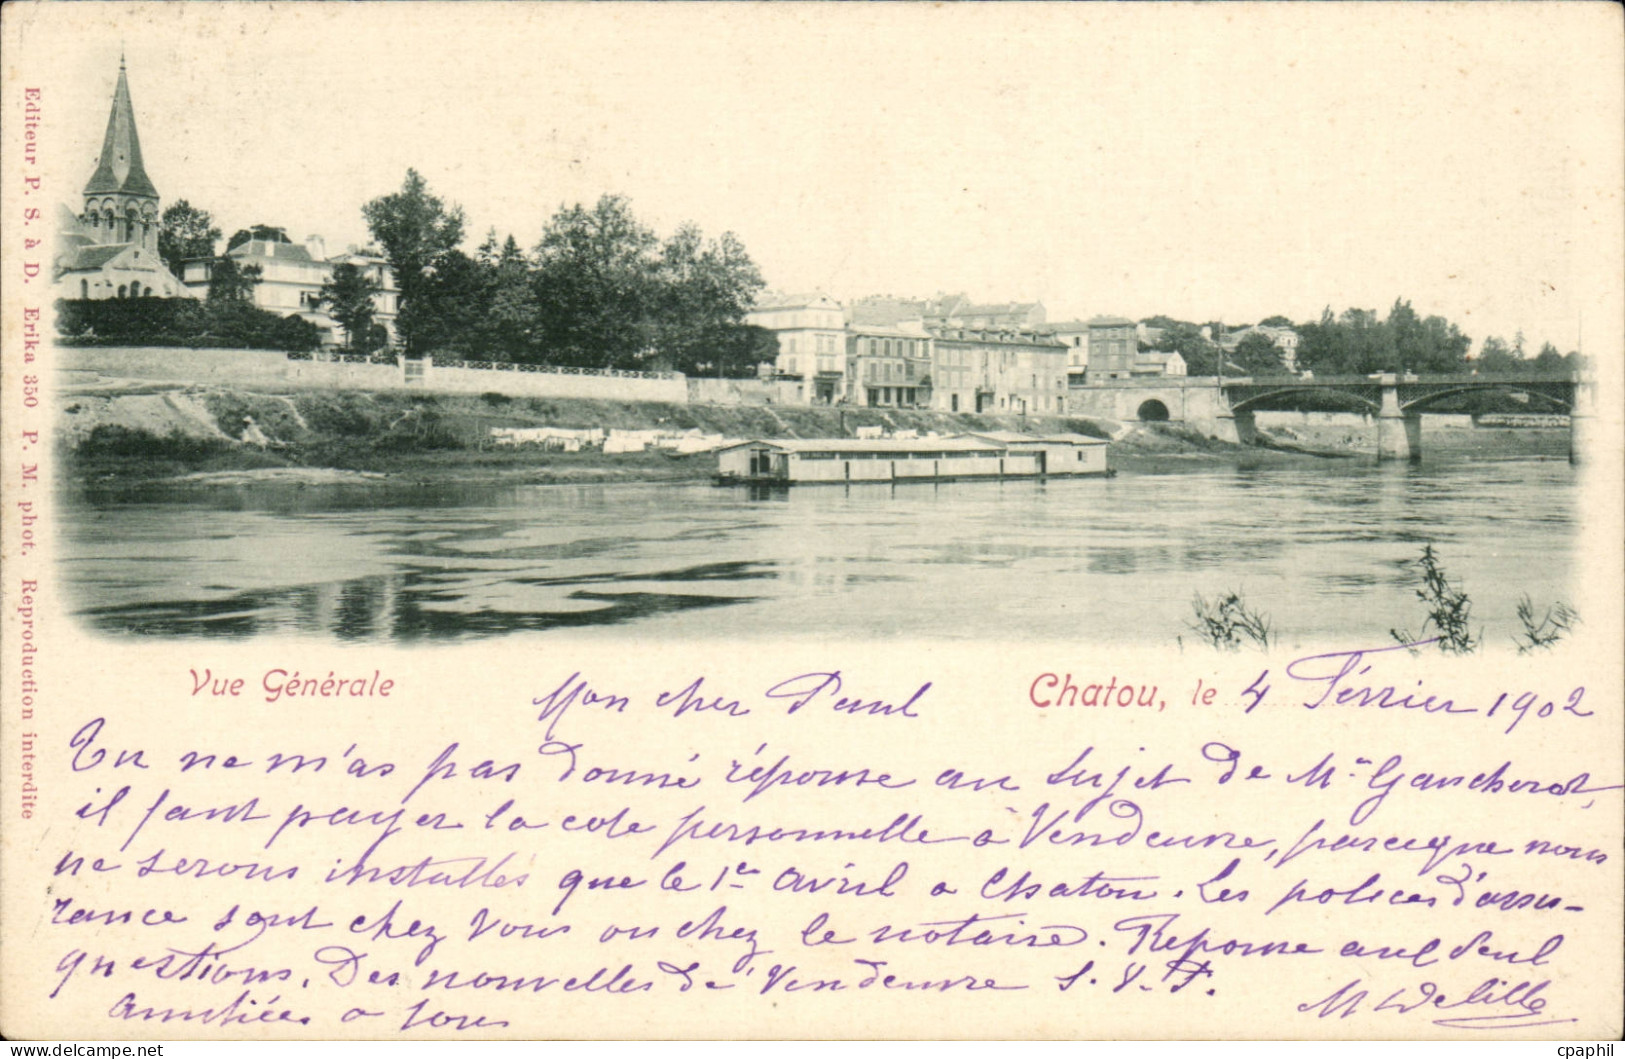 Editeur P. S. à D. Erika 350 P. M. phot. Reproduction interdite
Vue Générale
Chatou, le 4 Février 1902
Mon cher Paul
Tu ne m'as pas donné réponse au sujet de Mr Gaucherot,
il faut payer la cote personnelle à Vendeuvre, parceque nous
ne serons installés que le 1er avril a Chatou. Les polices d'assu-
rance sont chez vous ou chez le notaire. Reponse aux
questions. Des nouvelles de Vendeuvre S. V. P.
Amitiées a tous
M Delille
cpaphil